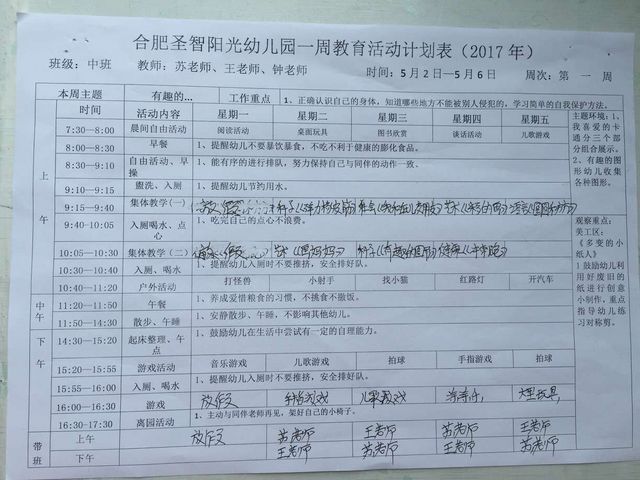 合肥圣智阳光幼儿园一周教育活动计划表（2017 年）
班级：中班 教师：苏老师、王老师、钟老师 时间：5 月 2 日—5 月 6 日 周次：第 一 周
本周主题 有趣的... 工作重点 1、正确认识自己的身体，知道哪些地方不能被别人侵犯的，学习简单的自我保护方法。
时间 活动内容 星期一 星期二 星期三 星期四 星期五
上午
7:30—8:00 晨间自由活动 阅读活动 桌面玩具 图书欣赏 谈话活动 儿歌游戏
8:00—8:30 早餐 1、提醒幼儿不要暴饮暴食，不吃不利于健康的膨化食品。
8:30—9:10 自由活动、早操 1、能有序的进行排队，努力保持自己与同伴的动作一致、
9:10—9:15 盥洗、入厕 1、提醒幼儿节约用水。
9:15—9:40 集体教学（一） 放假
9:40—10:05 入厕喝水、点心 1、吃完自己的点心不浪费。
10:05—10:30 集体教学（二） 放假
10:30—10:40 入厕、喝水 1、提醒幼儿入厕时不要推挤，安全排好队。
10:40—11:20 户外活动 打怪兽 小射手 找小猫 红路灯 开汽车
中午
11:20—11:50 午餐 1、养成爱惜粮食的习惯，不挑食不撒饭。
11:50—14:30 散步、午睡 1、安静散步、午睡，不影响其他幼儿。
下午
14:30—15:20 起床整理、午点 1、鼓励幼儿在生活中尝试有一定的自理能力。
15:20—15:55 游戏活动 音乐游戏 儿歌游戏 拍球 手指游戏 拍球
15:55—16:00 入厕、喝水 1、提醒幼儿入厕时不要推挤，安全排好队。
16:00—16:30 游戏 放假 手指游戏 儿歌游戏 玩玩具
16:30-17:30 离园活动 1、主动与同伴老师再见，架好自己的小椅子。
带班
上午 放假 苏老师 王老师 苏老师 王老师
下午 王老师 苏老师 王老师 苏老师
主题环境：1、我喜爱的卡通分三个部分组合展示。
2、有趣的图形幼儿收集各种图形。
观察重点：
美工区：
《多变的小纸人》
1 鼓励幼儿利用好废旧的纸进行创意小制作，重点指导幼儿练习对称剪。